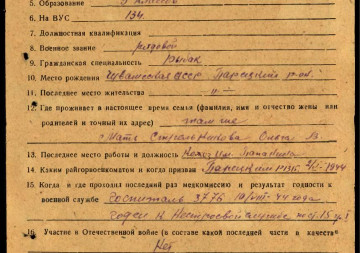 5. Образование
6. На ВУС 134.
7. Должностная квалификация
8. Военное звание рядовой
9. Гражданская специальность рыбак
10. Место рождения Чувашская АССР.
11. Последнее место жительства — " —
12. Где проживает в настоящее время семья (фамилия, имя и отчество жены или
родителей и точный их адрес)
Мать Стрельникова Ольга В.
13. Последнее место работы и должность
14. Каким райгорвоенкоматом и когда призван 1944
15. Когда и где проходил последний раз медкомиссию и результат годности к
военной службе госпиталь 3776 44 года
годен к нестроевой службе по ст. 15
16. Участие в Отечественной войне (в составе какой последней части в качеств
Нет